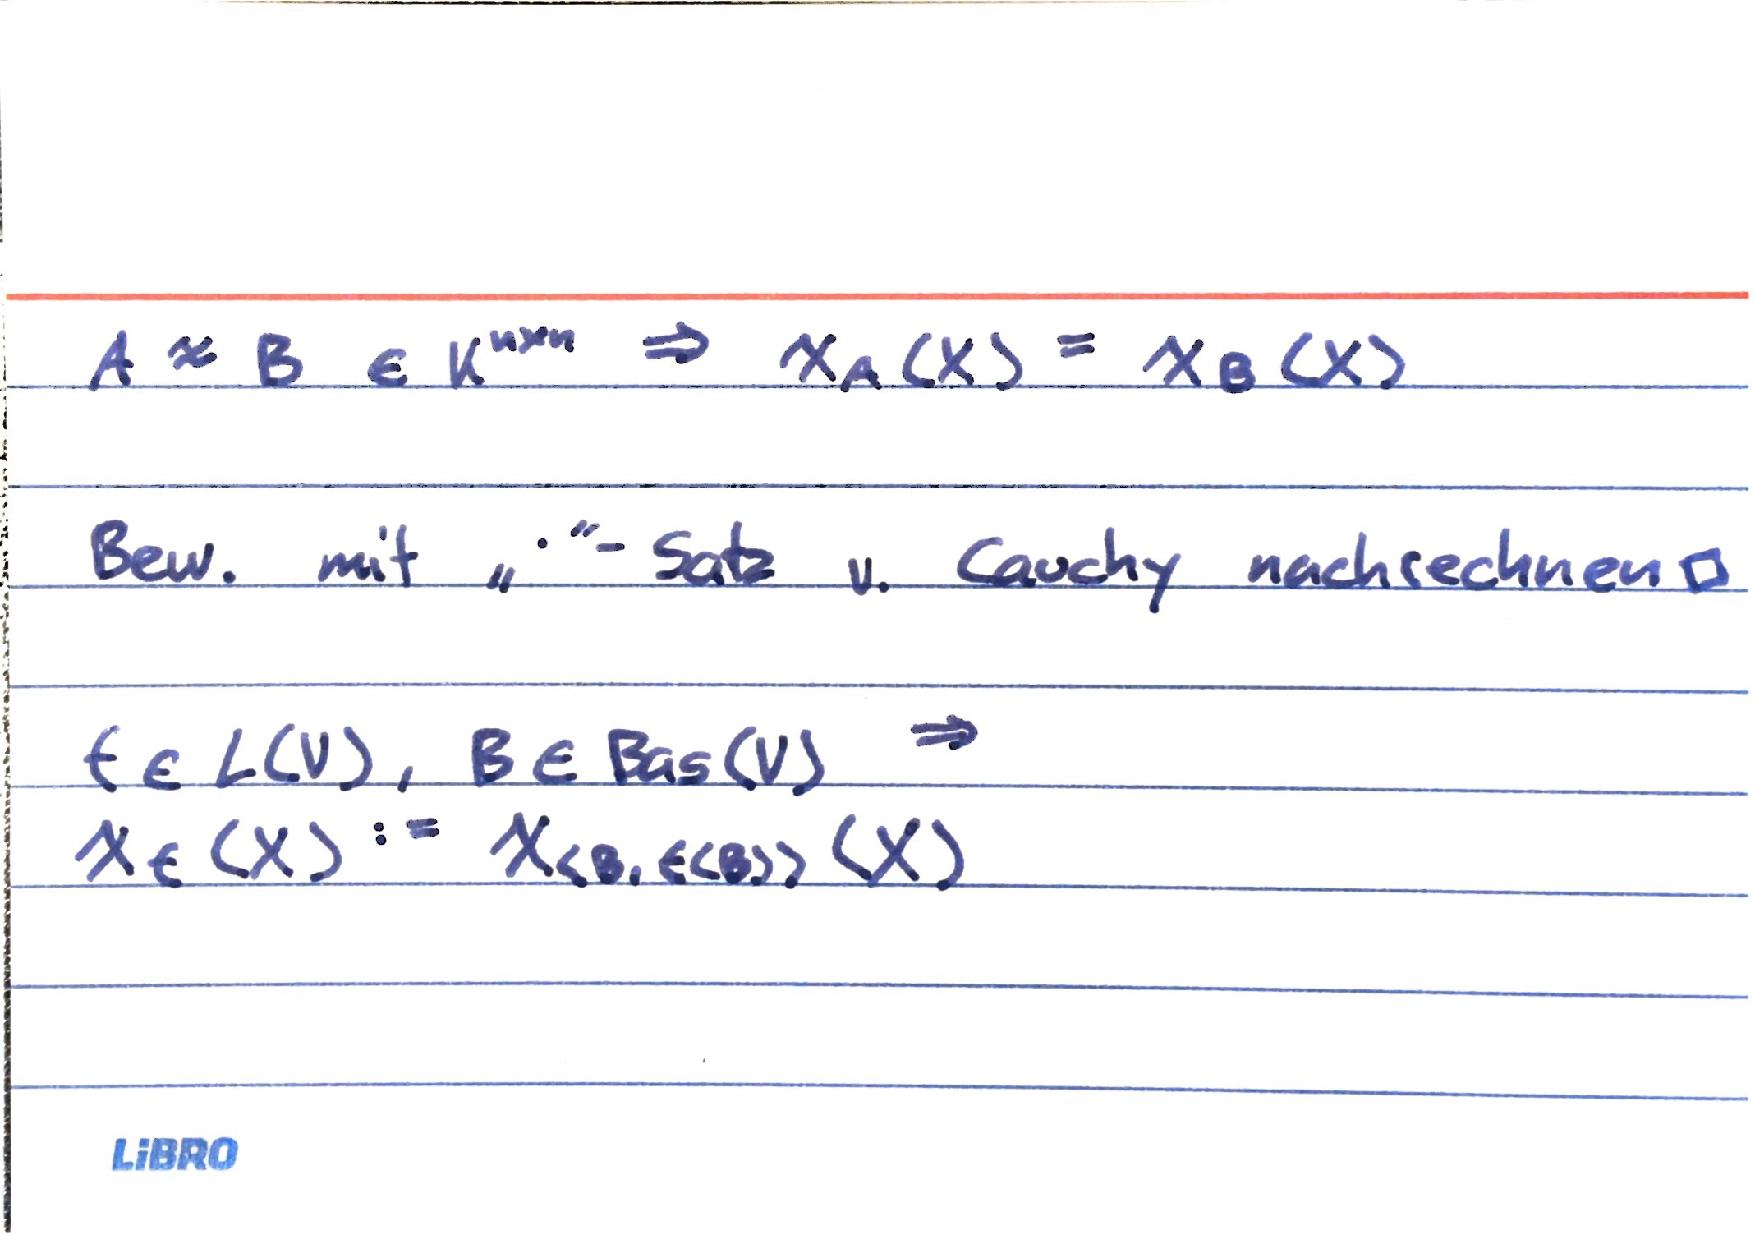 A ≈ B ∈ K^{n×n} ⇒ χ_A(X) = χ_B(X)
Bew. mit „·“-Satz v. Cauchy nachrechnen □
f ∈ L(V), B ∈ Bas(V) ⇒
χ_f(X) := χ_{⟨B, f(B)⟩}(X)
LiBRO